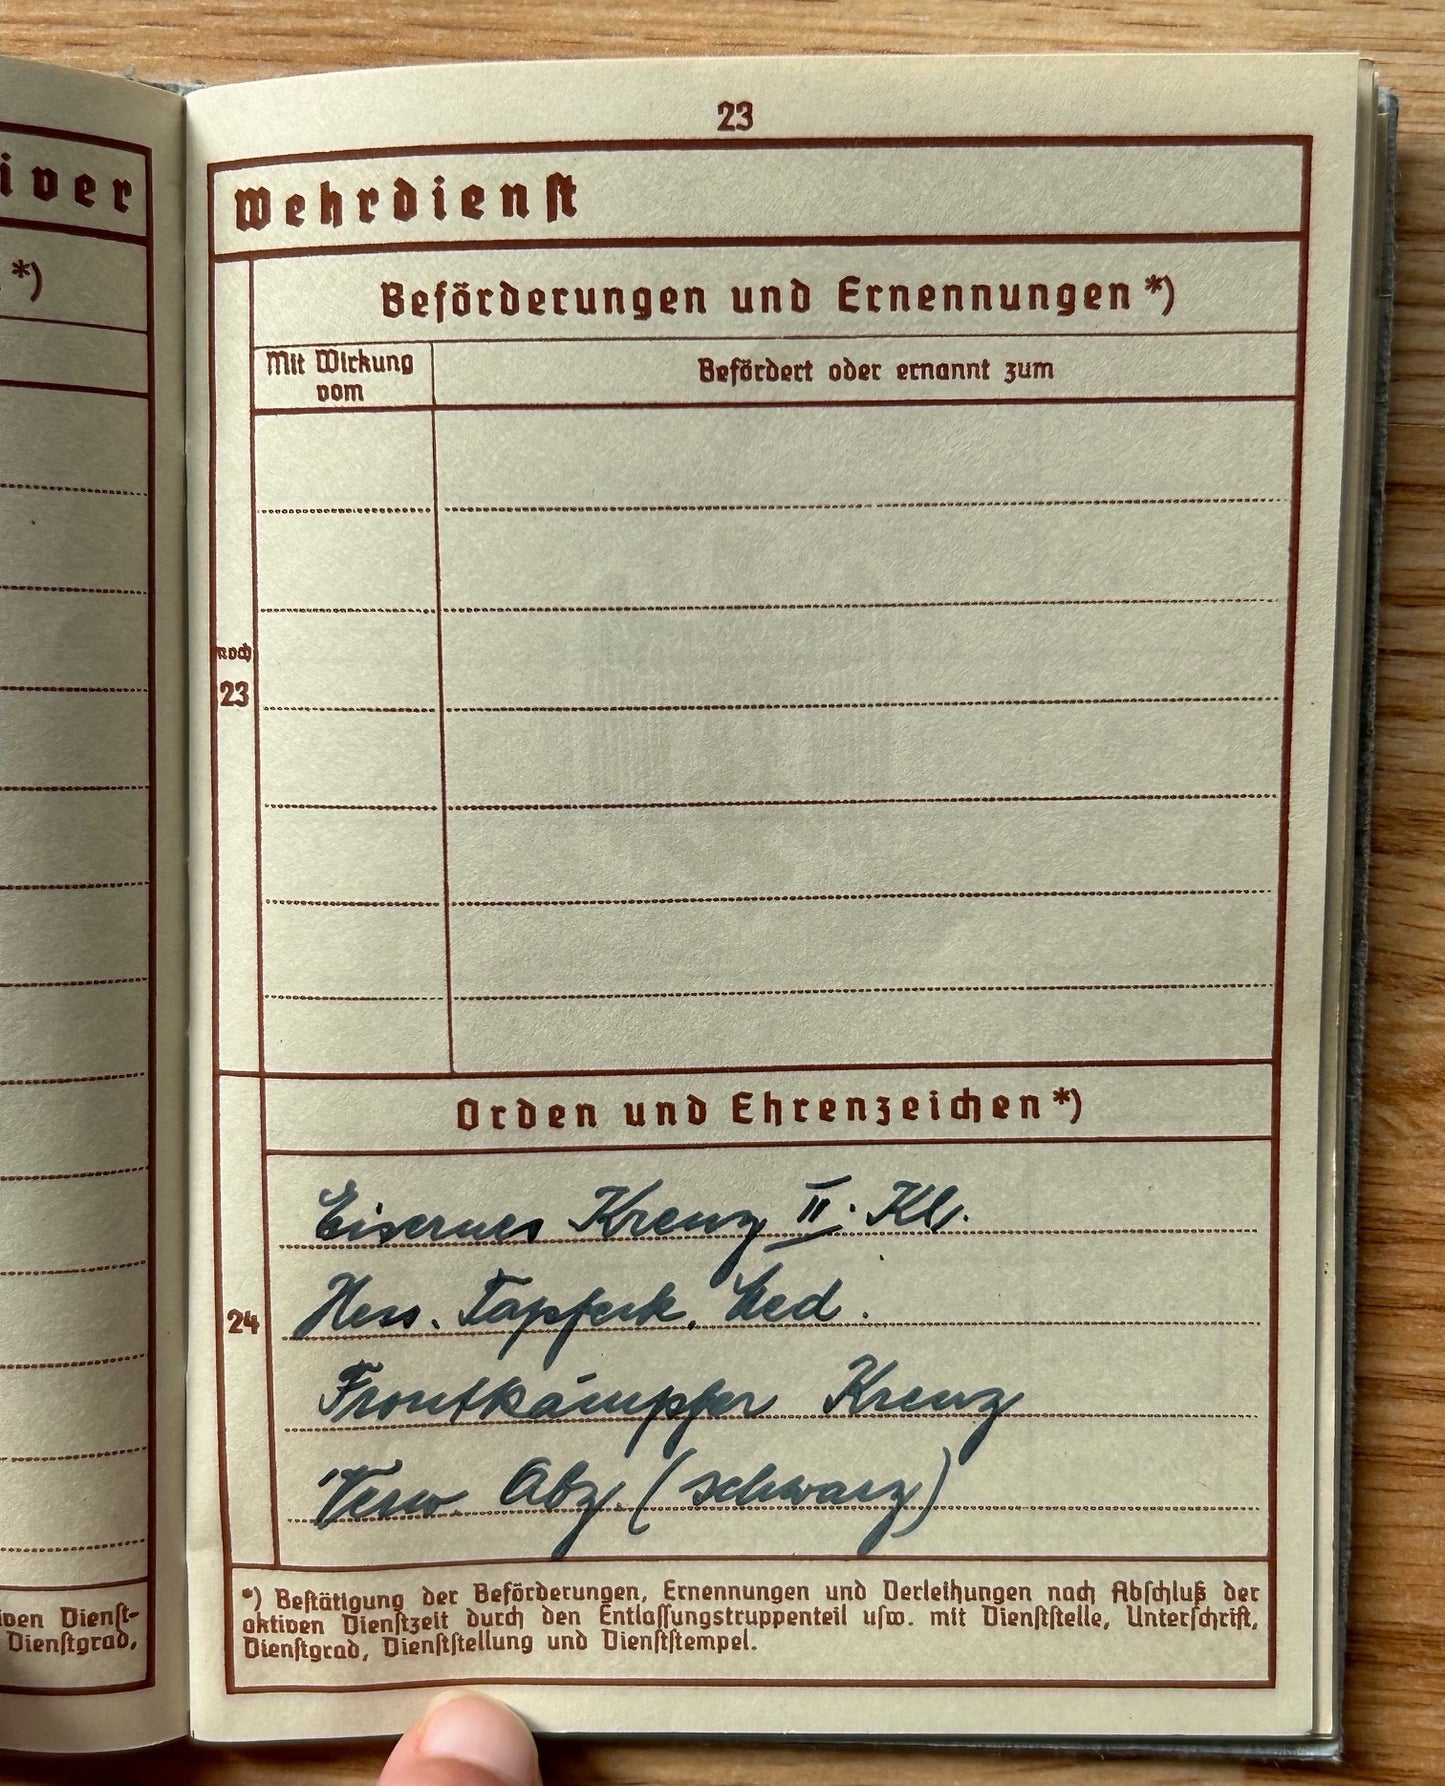 iver
*)
iven Dienst-
Dienstgrad,
23
Wehrdienst
Beförderungen und Ernennungen *)
Mit Wirkung
vom
Befördert oder ernannt zum
noch
23
Orden und Ehrenzeichen *)
Eisernes Kreuz II. Kl.
Hess. Tapferk. Med.
24
Frontkämpfer Kreuz
Verw. Abz. (schwarz)
*) Bestätigung der Beförderungen, Ernennungen und Verleihungen nach Abschluß der
aktiven Dienstzeit durch den Entlassungstruppenteil usw. mit Dienststelle, Unterschrift,
Dienstgrad, Dienststellung und Dienststempel.